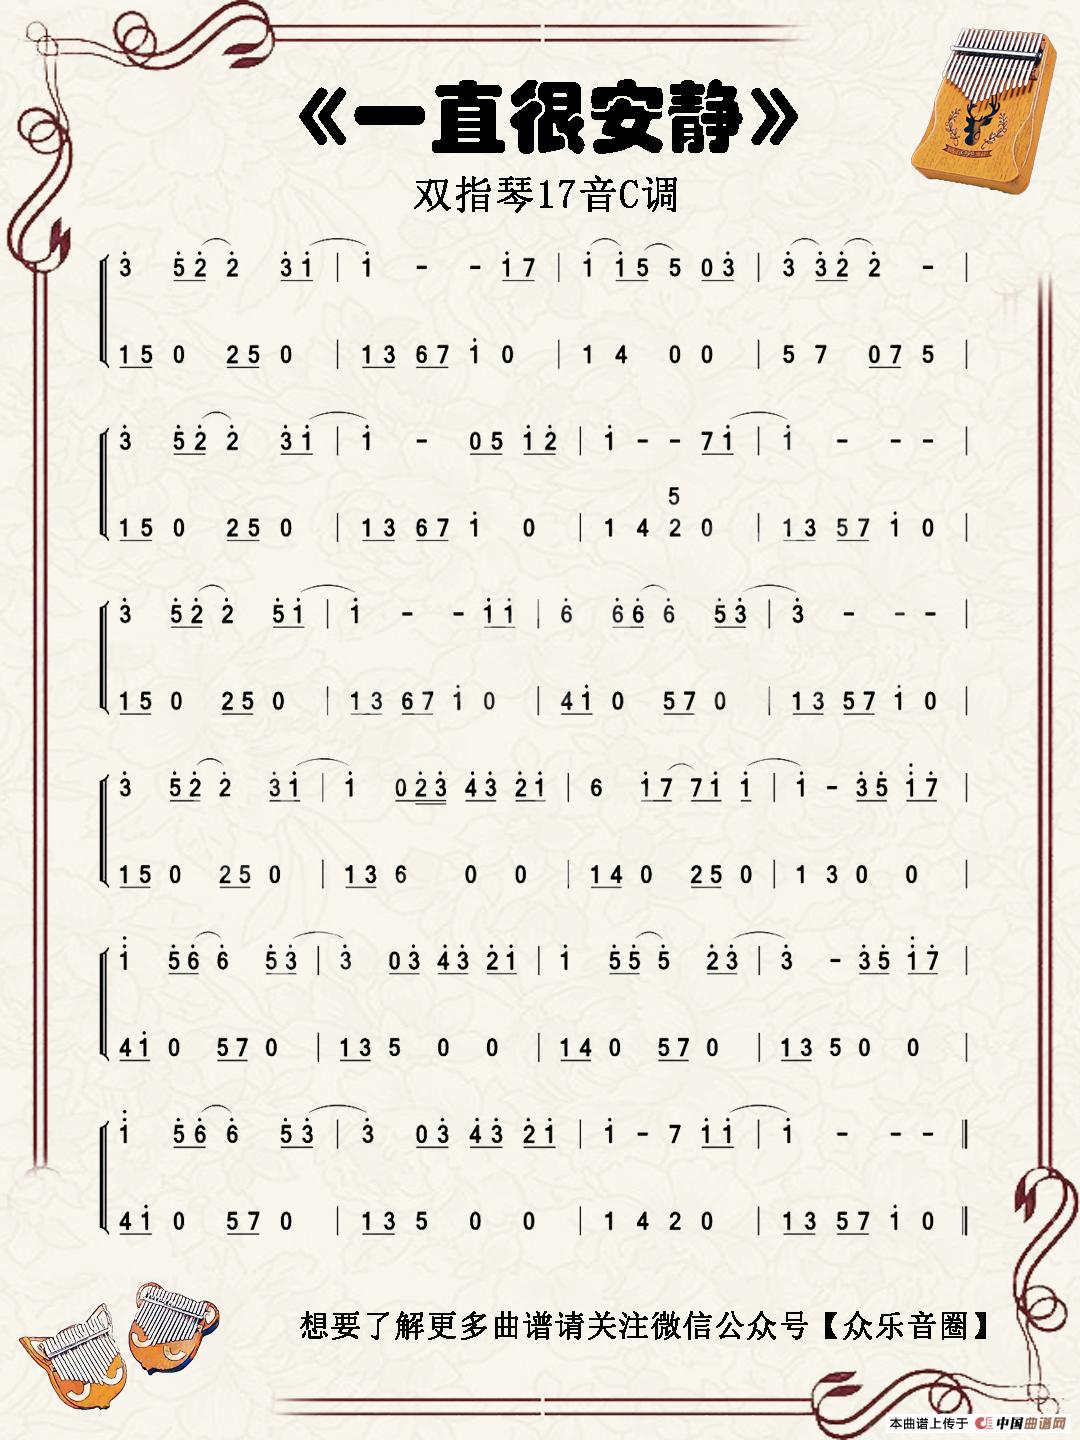 《一直很安静》
双指琴17音C调
3̇ 5̇2̇ 2̇ 3̇1̇ | 1̇ - - 1̇7 | 1̇ 1̇5 5 03̇ | 3̇ 3̇2̇ 2̇ - |
15 0 25 0 | 13 67 1̇ 0 | 1 4 0 0 | 5 7 07 5 |
3̇ 5̇2̇ 2̇ 3̇1̇ | 1̇ - 05 1̇2̇ | 1̇ - - 71̇ | 1̇ - - - |
5
15 0 25 0 | 13 67 1̇ 0 | 1 4 2 0 | 13 57 1̇ 0 |
3̇ 5̇2̇ 2̇ 5̇1̇ | 1̇ - - 1̇1̇ | 6̇ 6̇6̇ 6̇ 5̇3̇ | 3̇ - - - |
15 0 25 0 | 13 67 1̇ 0 | 41̇ 0 57 0 | 13 57 1̇ 0 |
3̇ 5̇2̇ 2̇ 3̇1̇ | 1̇ 02̇3̇ 4̇3̇ 2̇1̇ | 6 1̇7 71̇ 1̇ | 1̇ - 3̇5̇ 1̈7̇ |
15 0 25 0 | 13 6 0 0 | 14 0 25 0 | 1 3 0 0 |
1̈ 5̇6̇ 6̇ 5̇3̇ | 3̇ 03̇ 4̇3̇ 2̇1̇ | 1̇ 5̇5̇ 5̇ 2̇3̇ | 3̇ - 3̇5̇ 1̈7̇ |
41̇ 0 57 0 | 13 5 0 0 | 14 0 57 0 | 13 5 0 0 |
1̈ 5̇6̇ 6̇ 5̇3̇ | 3̇ 03̇ 4̇3̇ 2̇1̇ | 1̇ - 7 1̇1̇ | 1̇ - - - ‖
41̇ 0 57 0 | 13 5 0 0 | 1 4 2 0 | 13 57 1̇ 0 ‖
想要了解更多曲谱请关注微信公众号【众乐音圈】
本曲谱上传于 中国曲谱网